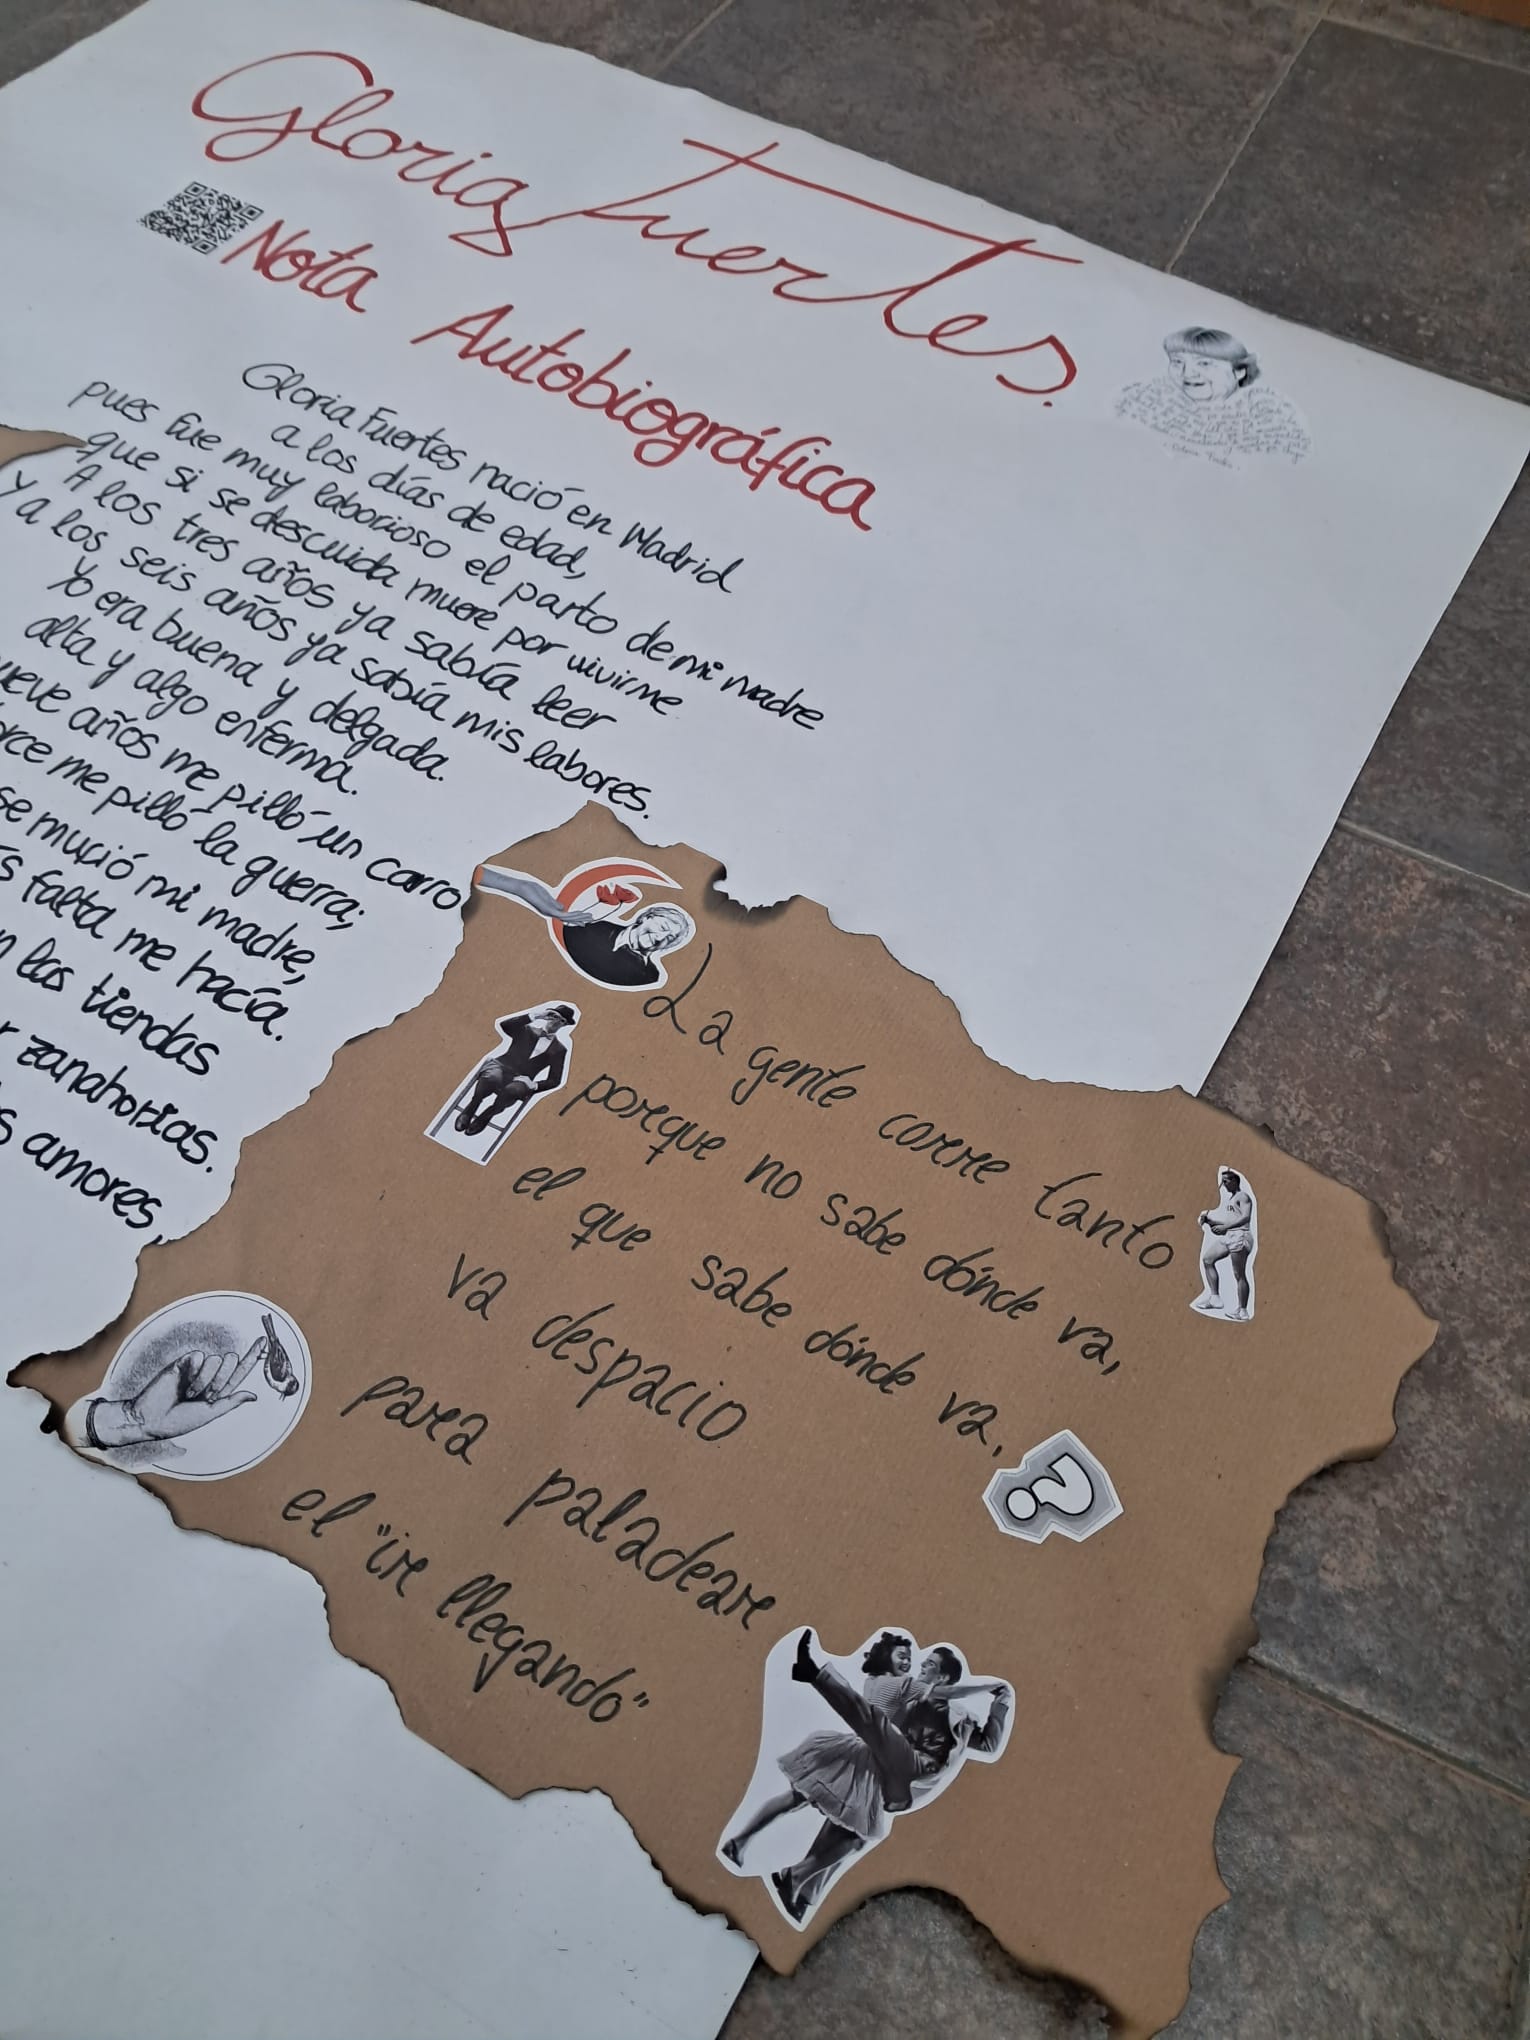 Gloria Fuertes.
Nota Autobiográfica
Gloria Fuertes nació en Madrid
a los días de edad,
pues fue muy laborioso el parto de mi madre
que si se descuida muere por vivirme
A los tres años ya sabía leer
Y a los seis años ya sabía mis labores.
Yo era buena y delgada.
alta y algo enferma.
años me pilló un carro
me pilló la guerra;
se murió mi madre,
falta me hacía.
las tiendas
zanahorias.
amores,
La gente corre tanto
porque no sabe dónde va,
el que sabe dónde va,
va despacio
para paladear
el "ir llegando"
?